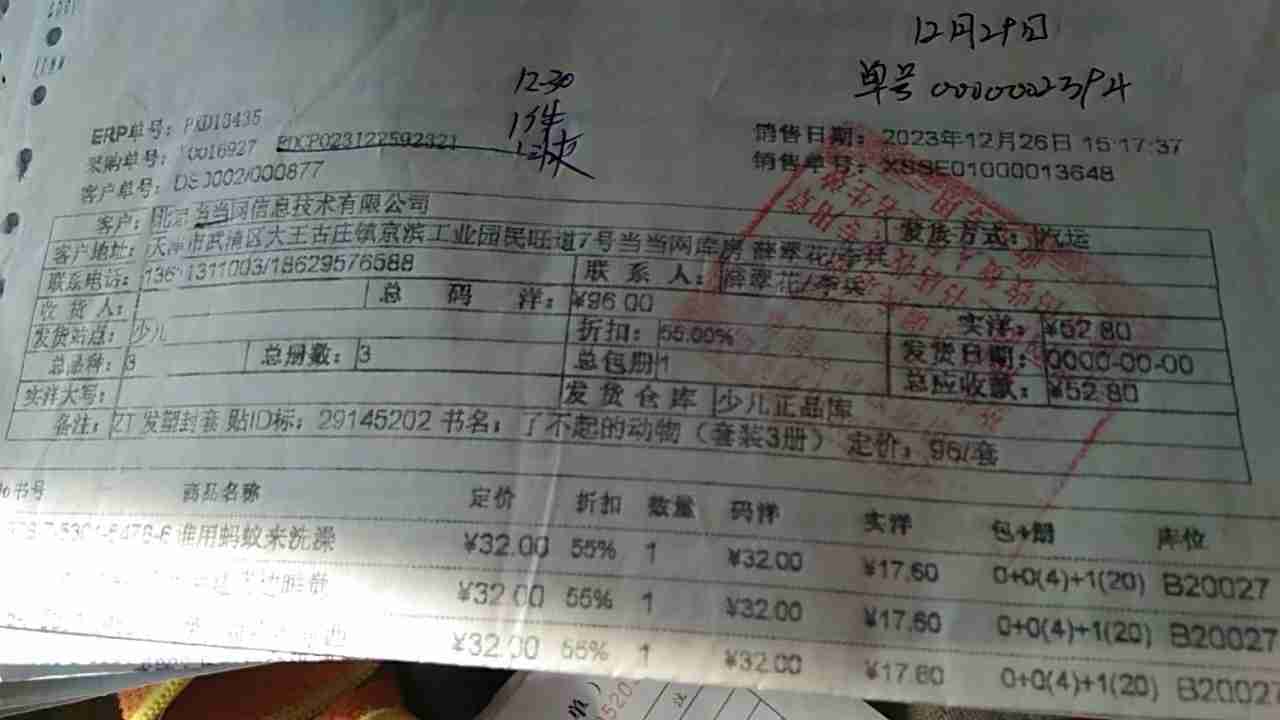 12月29日
单号 0000002394
12-30
1件
ERP单号：PXD13435
采购单号：0016927 PDCP023122592321
客户单号：DS0002/000877
销售日期：2023年12月26日 15:17:37
销售单号：XSSE01000013648
客户：北京当当网信息技术有限公司 发货方式：汽运
客户地址：天津市武清区大王古庄镇京滨工业园民旺道7号当当网库房 薛翠花/李兵
联系电话：1311003/18629576588 联系人：薛翠花/李兵
收货人： 总码洋：¥96.00 实洋：¥52.80
发货站点：少儿 折扣：55.00% 发货日期：0000-00-00
总品种：3 总册数：3 总包册 1 总应收款：¥52.80
实洋大写： 发货仓库 少儿正品库
备注：ZT 发塑封套 贴ID标：29145202 书名：了不起的动物（套装3册） 定价：96/套
书号 商品名称 定价 折扣 数量 码洋 实洋 包+册 库位
谁用蚂蚁来洗澡 ¥32.00 55% 1 ¥32.00 ¥17.60 0+0(4)+1(20) B20027
¥32.00 55% 1 ¥32.00 ¥17.60 0+0(4)+1(20) B20027
¥32.00 55% 1 ¥32.00 ¥17.60 0+0(4)+1(20) B20027